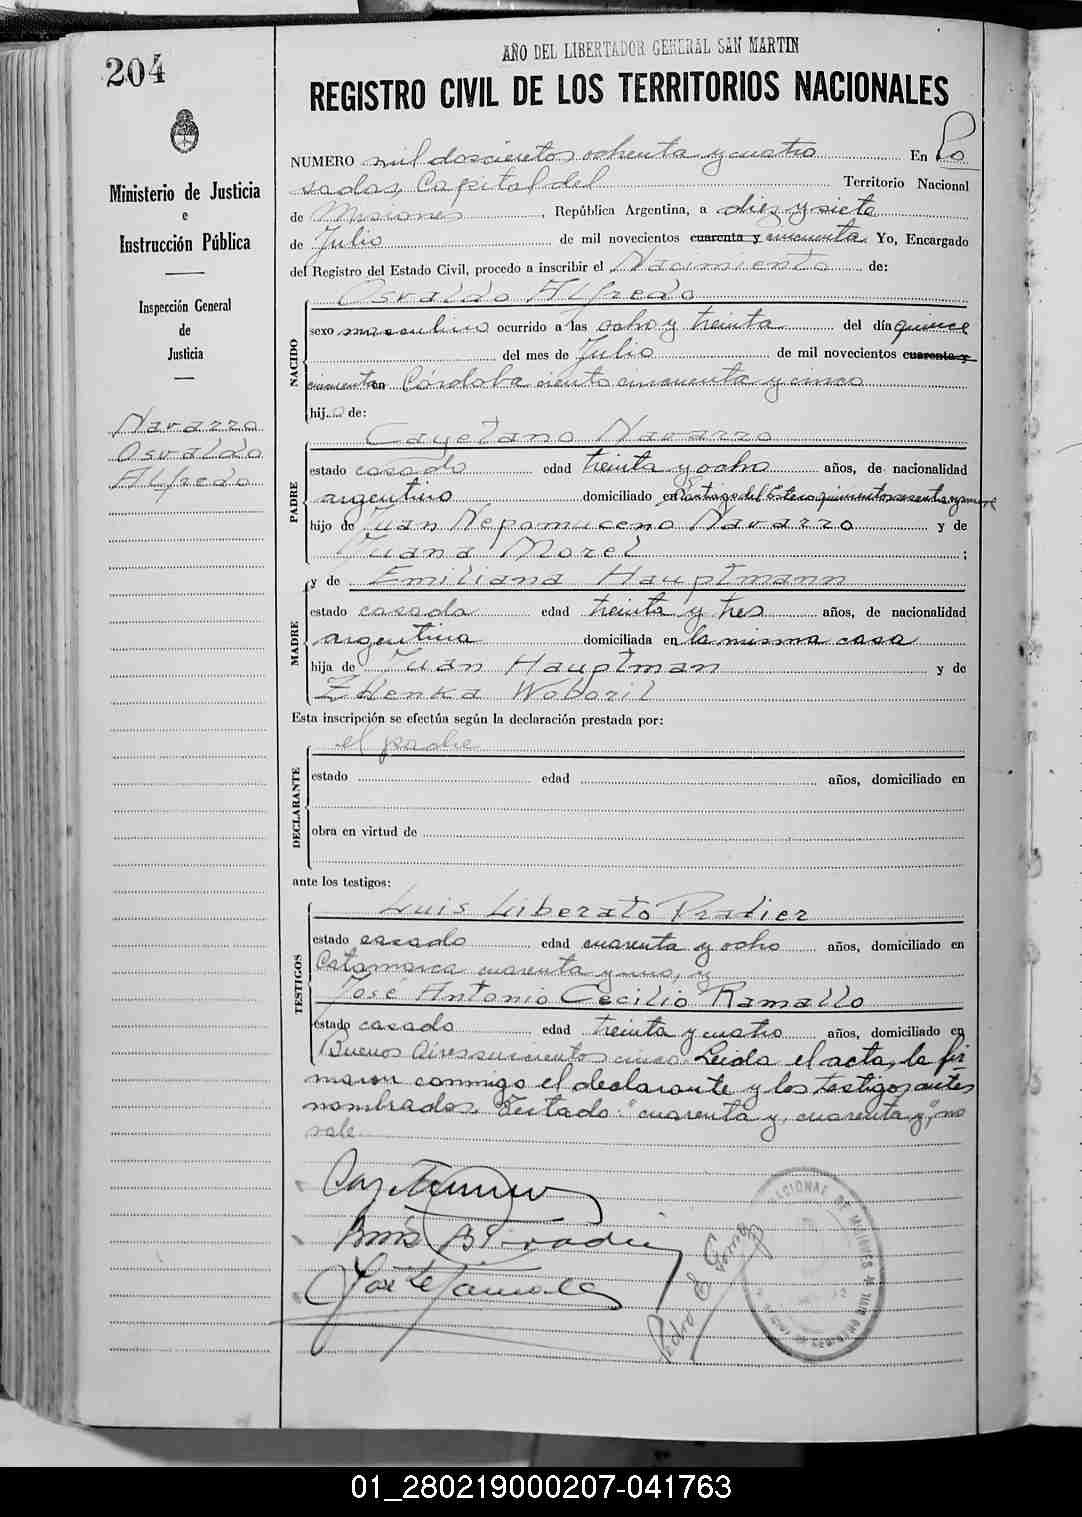 204
Ministerio de Justicia
e
Instrucción Pública
Inspección General
de
Justicia
Navarro
Osvaldo
Alfredo
AÑO DEL LIBERTADOR GENERAL SAN MARTIN
REGISTRO CIVIL DE LOS TERRITORIOS NACIONALES
NUMERO mil doscientos ochenta y cuatro En Po
sadas, Capital del Territorio Nacional
de Misiones, República Argentina, a diez y siete
de Julio de mil novecientos cuarenta y cincuenta. Yo, Encargado
del Registro del Estado Civil, procedo a inscribir el Nacimiento de:
NACIDO
Osvaldo Alfredo
sexo masculino ocurrido a las ocho y treinta del día quince
del mes de Julio de mil novecientos cuarenta y
cincuenta en Córdoba ciento cincuenta y cinco
hijo de:
PADRE
Cayetano Navarro
estado casado edad treinta y ocho años, de nacionalidad
argentino domiciliado en Santiago del Estero quinientos sesenta y nueve
hijo de Juan Nepomuceno Navarro y de
Juana Morel ;
y de Emiliana Hauptmann
MADRE
estado casada edad treinta y tres años, de nacionalidad
argentina domiciliada en la misma casa
hija de Juan Hauptman y de
Zdenka Woboril
Esta inscripción se efectúa según la declaración prestada por:
el padre
DECLARANTE
estado edad años, domiciliado en
obra en virtud de
ante los testigos:
TESTIGOS
Luis Liberato Pradier
estado casado edad cuarenta y ocho años, domiciliado en
Catamarca cuarenta y uno, y
José Antonio Cecilio Ramallo
estado casado edad treinta y cuatro años, domiciliado en
Buenos Aires seiscientos cinco. Leída el acta, la fir
maron conmigo el declarante y los testigos antes
nombrados. Testado: "cuarenta y, cuarenta y", no
vale.
01_280219000207-041763